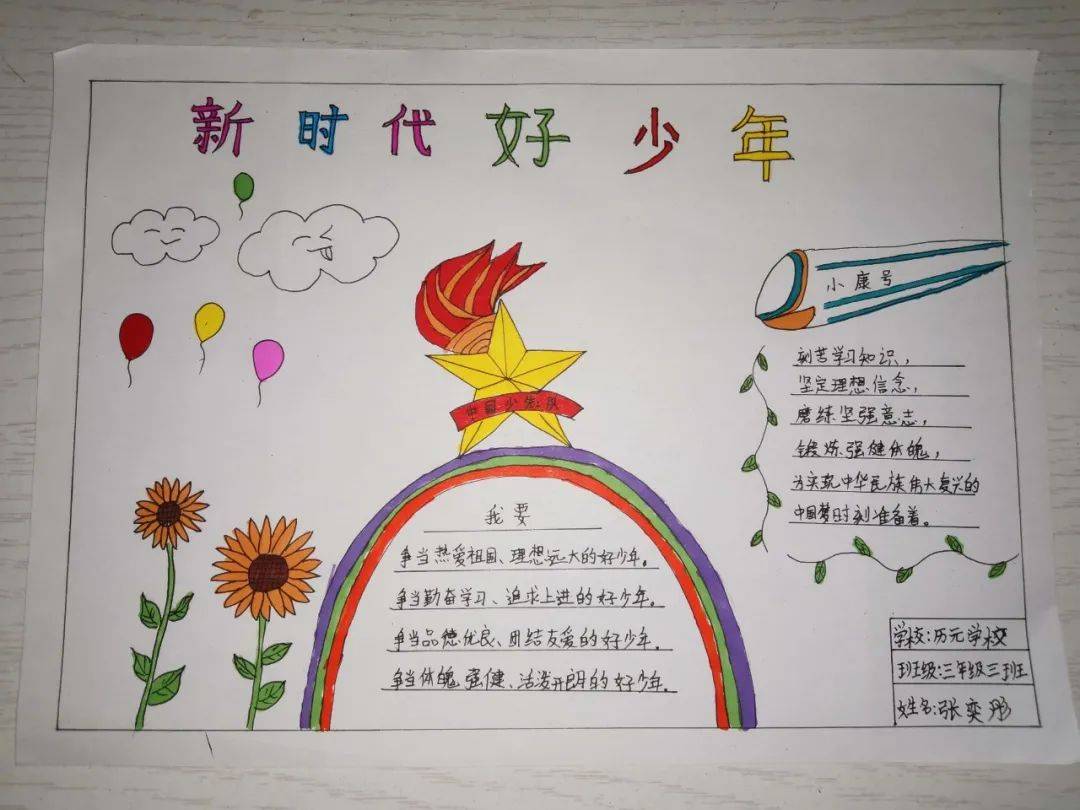 新时代好少年
小康号
刻苦学习知识，
坚定理想信念，
磨练坚强意志，
锻炼强健体魄，
为实现中华民族伟大复兴的
中国梦时刻准备着。
中国少先队
我要
争当热爱祖国、理想远大的好少年。
争当勤奋学习、追求上进的好少年。
争当品德优良、团结友爱的好少年。
争当体魄强健、活泼开朗的好少年。
学校:历元学校
班级:三年级三班
姓名:张奕彤